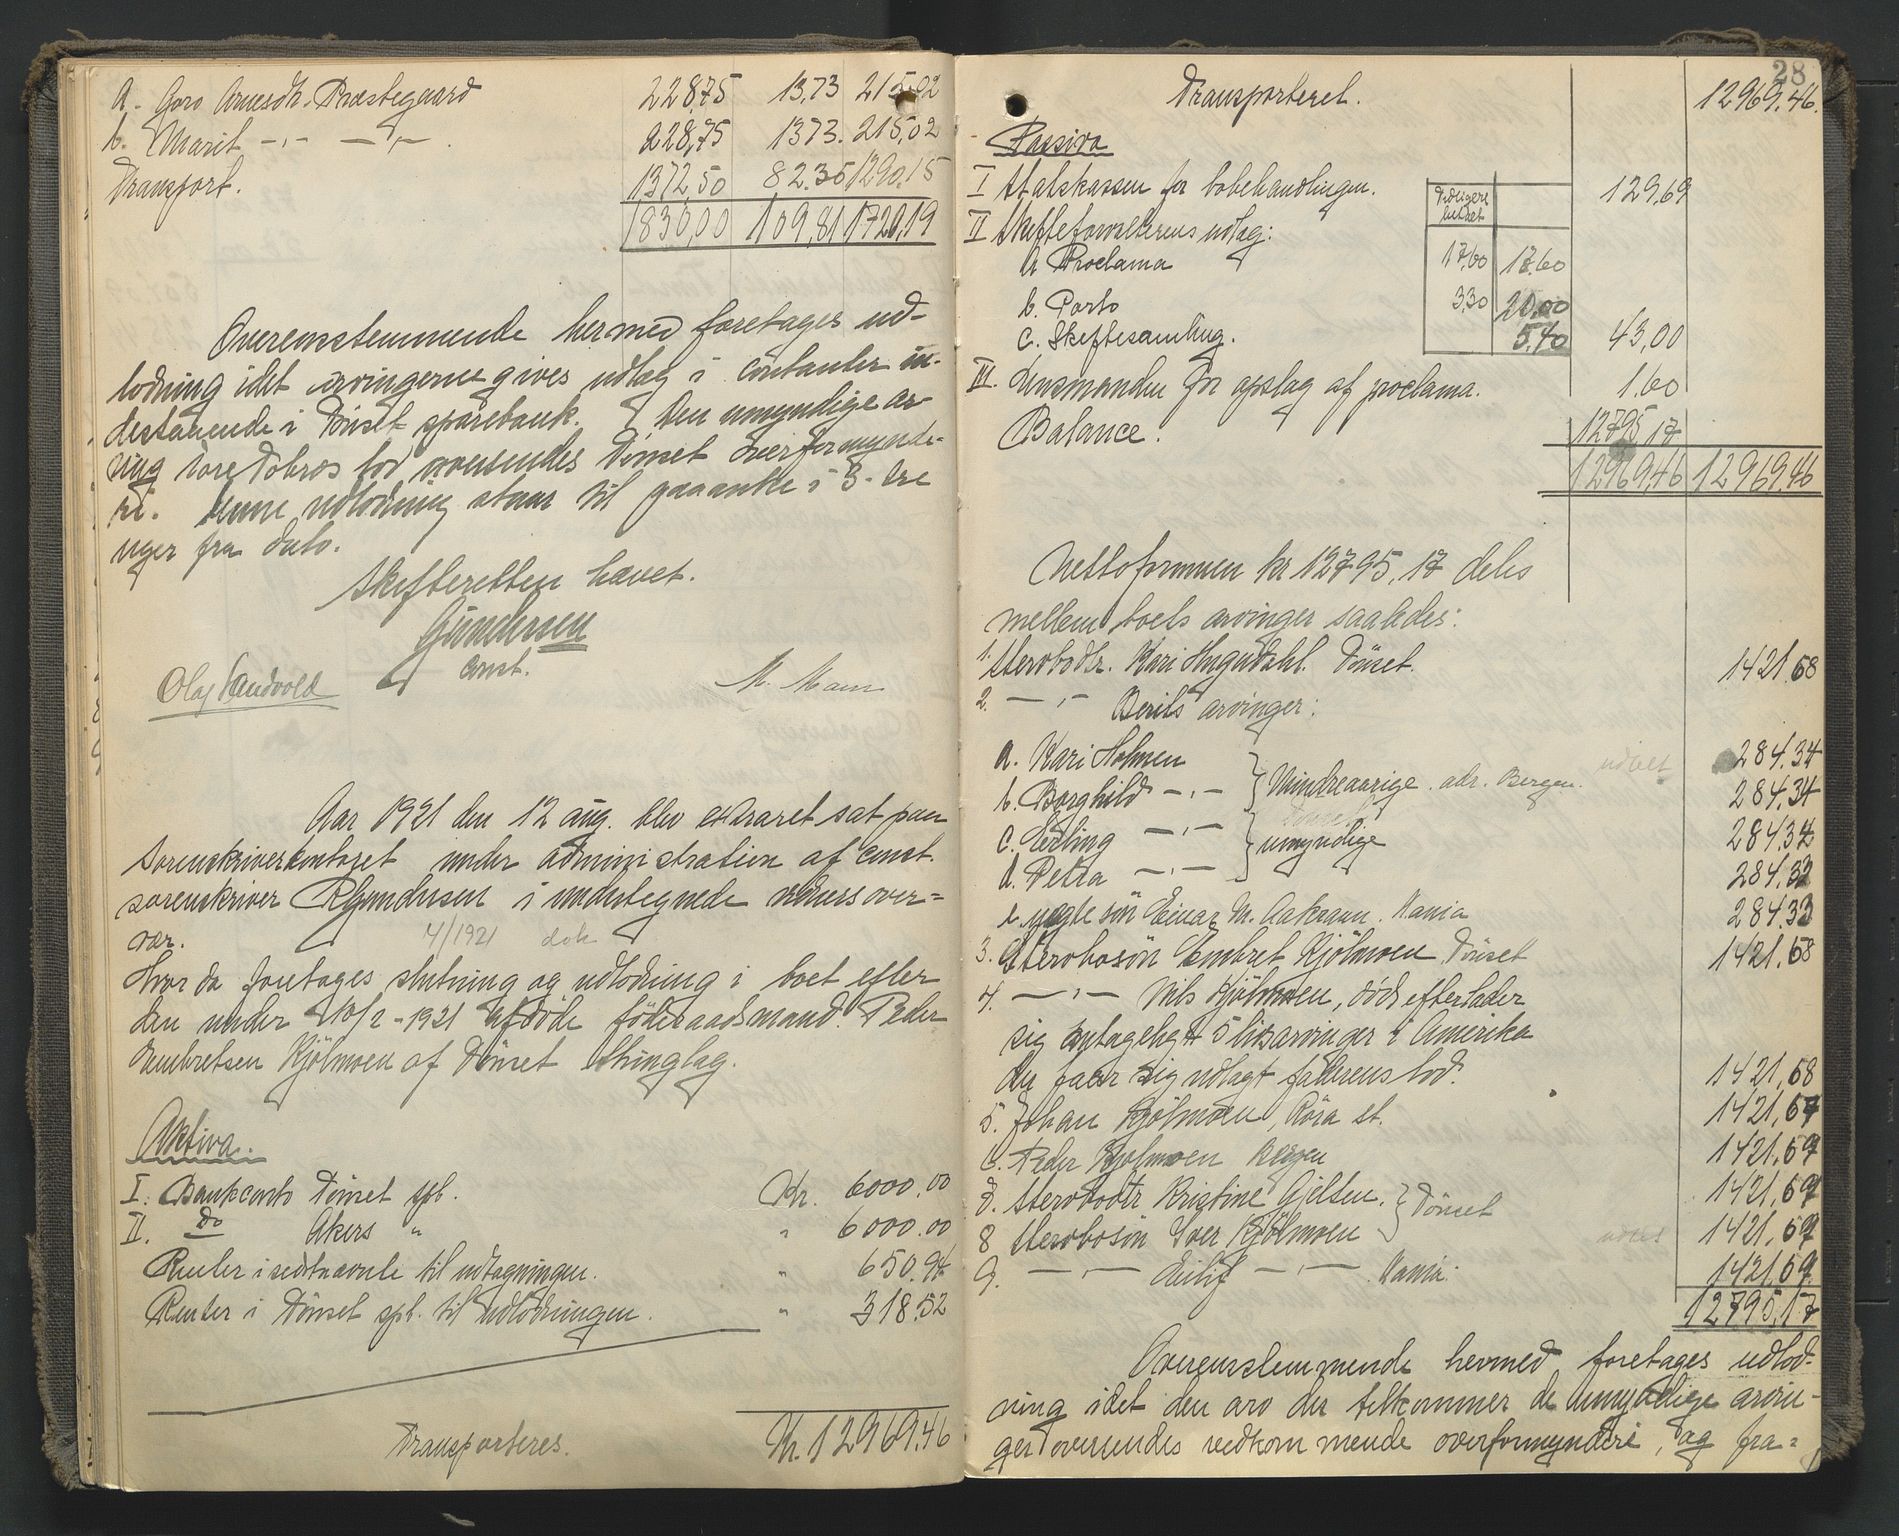 a. Goro Arnesdtr. Præstegaard 228,75 13,73 215,02
b. Marit -„- -„- 228,75 13,73. 215,02
Transport. 1372,50 82.35 1290.15
1830,00 109,81 1720,19
Overensstemmende hermed foretages ud-
lodning idet arvingerne gives udlæg i contanter in-
destaaende i Tönset sparebank. Den umyndige ar-
ving Tore Tobros lod oversendes Tönset overformynde-
ri. Denne udlodning staar til paaanke i 3 - tre
uger fra dato.
Skifteretten hævet.
Gundersen
const.
Olaf Sandvold M. Moen
Aar 1921 den 12 aug. blev skifteret sat paa
sorenskriverkontoret under administration af const.
sorenskriver R. Gundersen i undertegnede vidners over-
vær.
4/1921 dok
Hvor da foretages slutning og udlodning i boet efter
den under 10/2 - 1921 afdöde föderaadsmand Peder
Embretsen Kjölmoen af Tönset thinglag.
Aktiva.
I. Bankconto Tönset spb. Kr. 6000.00
II. Do Akers " " 6000.00
Renter i sidstnævnte til udtagningen. " 650.94
Renter i Tönset spb. til udlodningen. " 318.52
Transporteres. Kr. 12969.46
28
Transporteret. 12969.46.
Passiva
I Statskassen for bobehandlingen. 129,69
II Skifteforvalterens udlæg: Tidligere
a Proclama 17,60 17.60
b. Porto 3,30 20,00
c. Skiftesamling. 5.40 43,00
III. Lensmanden for opslag af proclama. 1.60
Balance. 12795,17
12969,46 12969.46
Nettoformuen kr 12795,17 deles
mellem boets arvinger saaledes:
1. Stervbodtr. Kari Hugudahl. Tönset. 1421.68
2. -„- Berits arvinger:
a. Kari Holmen } Mindreaarige. adr. Bergen. udbet 284.34
b. Borghild -„- 284.34
c. Erling -„- } umyndige 284.34
d. Petra -„- 284.33
e. uegte sön Einar M. Aakrann. Vania 284.33
3. Stervbosön Embret Kjölmoen Tönset 1421.68
4. -„- Nils Kjölmoen, död efterlader
sig antagelig 5 livsarvinger i Amerika
der faar sig udlagt faderens lod. 1421,68
5. Johan Kjölmoen, Röra st. 1421,67
6. Peder Kjølmoen Bergen 1421,69
7. Stervbodtr Kristine Gjelten. } Tönset 1421,69
8 Stervbosön Iver Kjölmoen udbet 1421,69
9. -„- Eilif -„- Vania. 1421.69
12795,17
Overensstemmende hermed foretages udlod-
ning idet den arv der tilkommer de umyndige arvin-
ger oversendes vedkommende overformynderi, og fra-